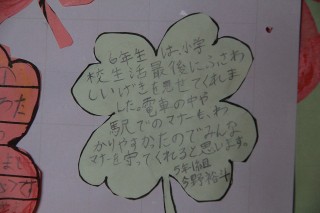 6年生は、小学
校生活最後にふさわ
しいげきを見せてくれま
した。電車の中や
駅でのマナーも、わ
かりやすかったのでみんな
マナーを守ってくれると思います。
5年1組